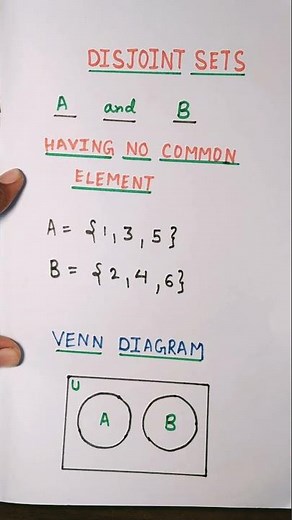 DISJOINT SETS
A and B
HAVING NO COMMON
ELEMENT
A = {1, 3, 5}
B = {2, 4, 6}
VENN DIAGRAM
U
A B